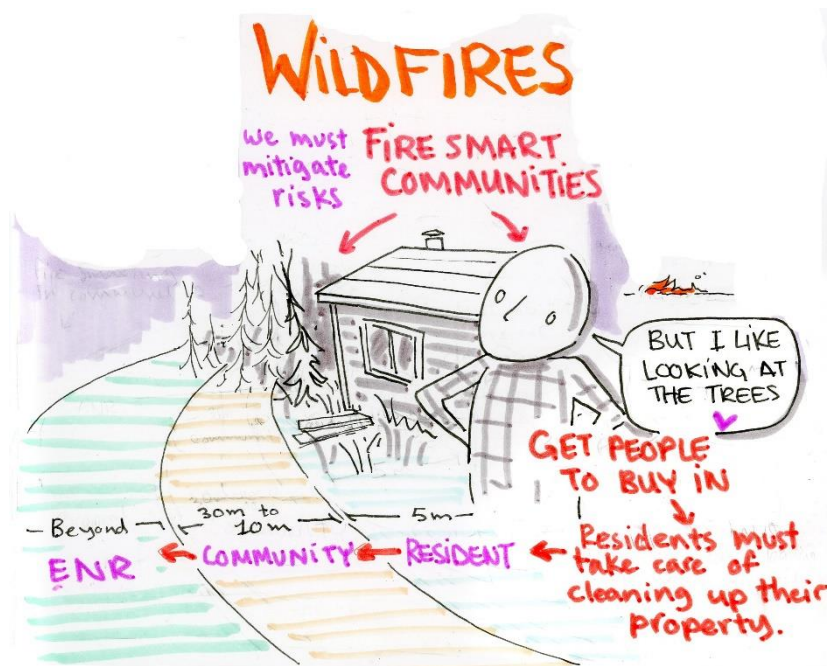 WILDFIRES
We must
mitigate
risks
FIRE SMART
COMMUNITIES
BUT I LIKE
LOOKING AT
THE TREES
GET PEOPLE
TO BUY IN
Residents must
take care of
cleaning up their
property.
- Beyond -
30m to
10m
5m
ENR
COMMUNITY
RESIDENT